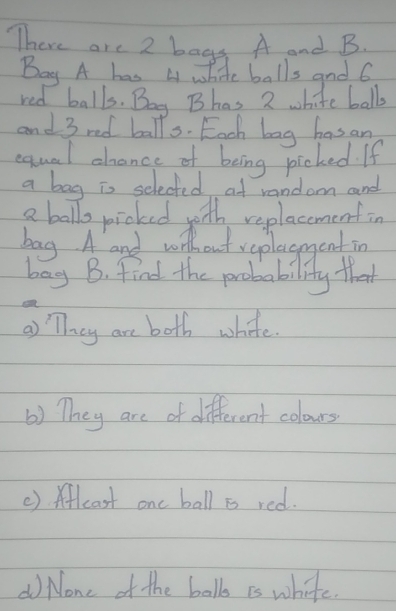 There are 2 bags A and B.
Bag A has 4 white balls and 6
red balls. Bag B has 2 white balls
and 3 red balls. Each bag has an
equal chance of being picked. If
a bag is selected at random and
2 balls picked with replacement in
bag A and without replacement in
bag B. Find the probability that
a) They are both white.
b) They are of different colours
c) Atleast one ball is red.
d) None of the balls is white.